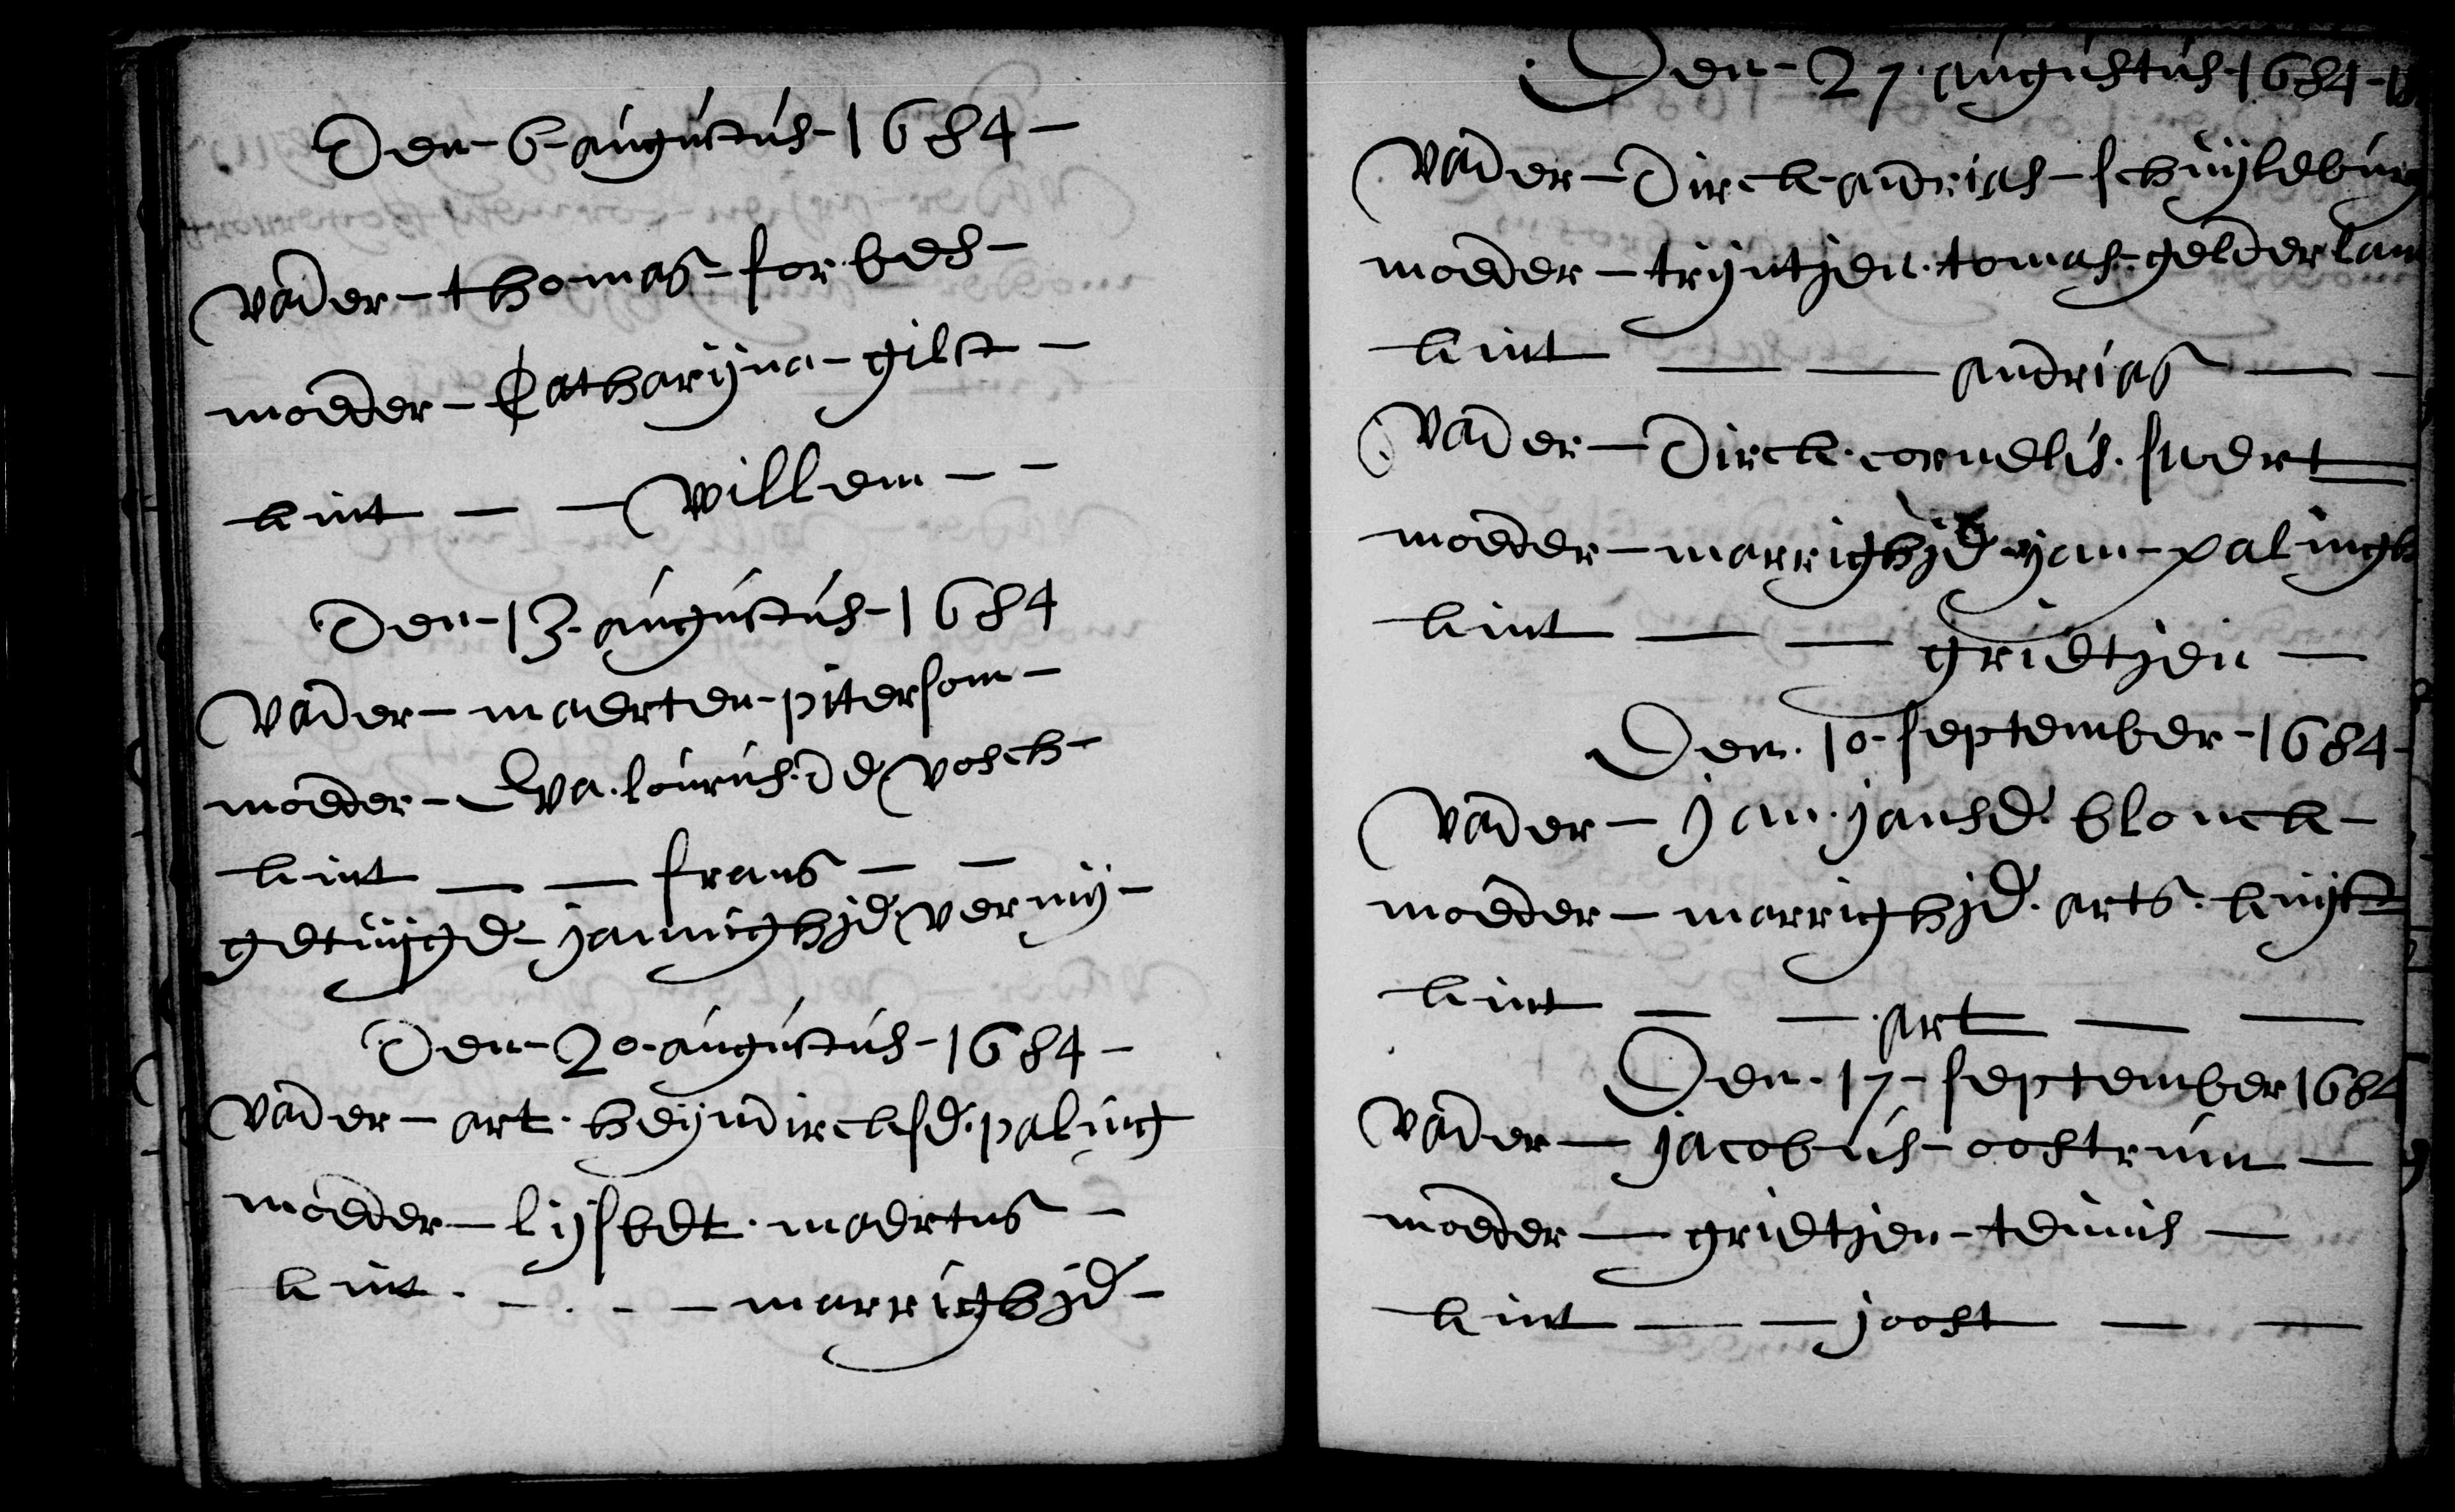 Den - 6 - augustus - 1684 -
vader - thomas - forbes -
moeder - Catharijna - gilst -
kint - - willem - -
Den - 13 - augustus - 1684
vader - maerten - pitersom -
moeder - Eva . lourus . de vosch -
kint - - frans - -
getuijge - jannighje vernij -
Den - 20 - augustus - 1684 -
vader - art . heijndirckse . paling
moeder - lijsbet . maertns -
kint . - . - - marrighje -
Den - 27 . augustus - 1684 -
vader - Dirck - andrias - schuijlebur
moeder - trijntjen . tomas - gelderlan
kint - - andrias - -
vader - Dirck . cornelis . swert
moeder - marrighje jan - palingh
kint - - grietjen -
Den . 10 - september - 1684 -
vader - jan . janse . blonck -
moeder - marrighje . arts . kuijt
kint - - art - -
Den . 17 - september 1684
vader - jacobus - oostrum -
moeder - grietjen - teunis -
kint - - joost - -